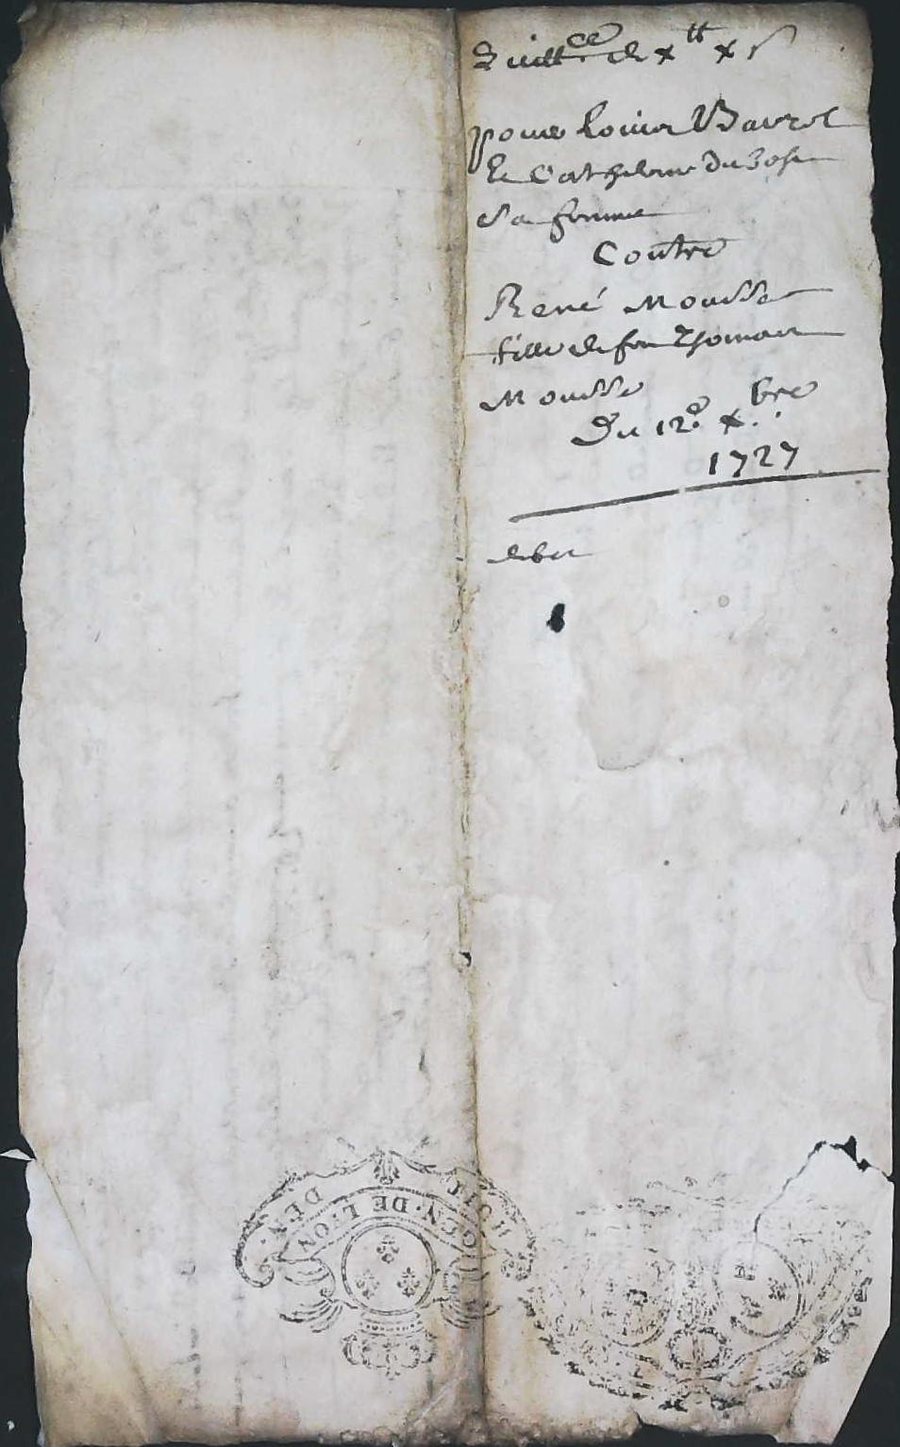 Quitt.ce de x tt x s
pour Louis Baurel
et Catherine Du
Sa femme
Contre
René Mousse
fille de feu Thomas
Mousse
Du 12e xbre
1727
GEN. DE LION